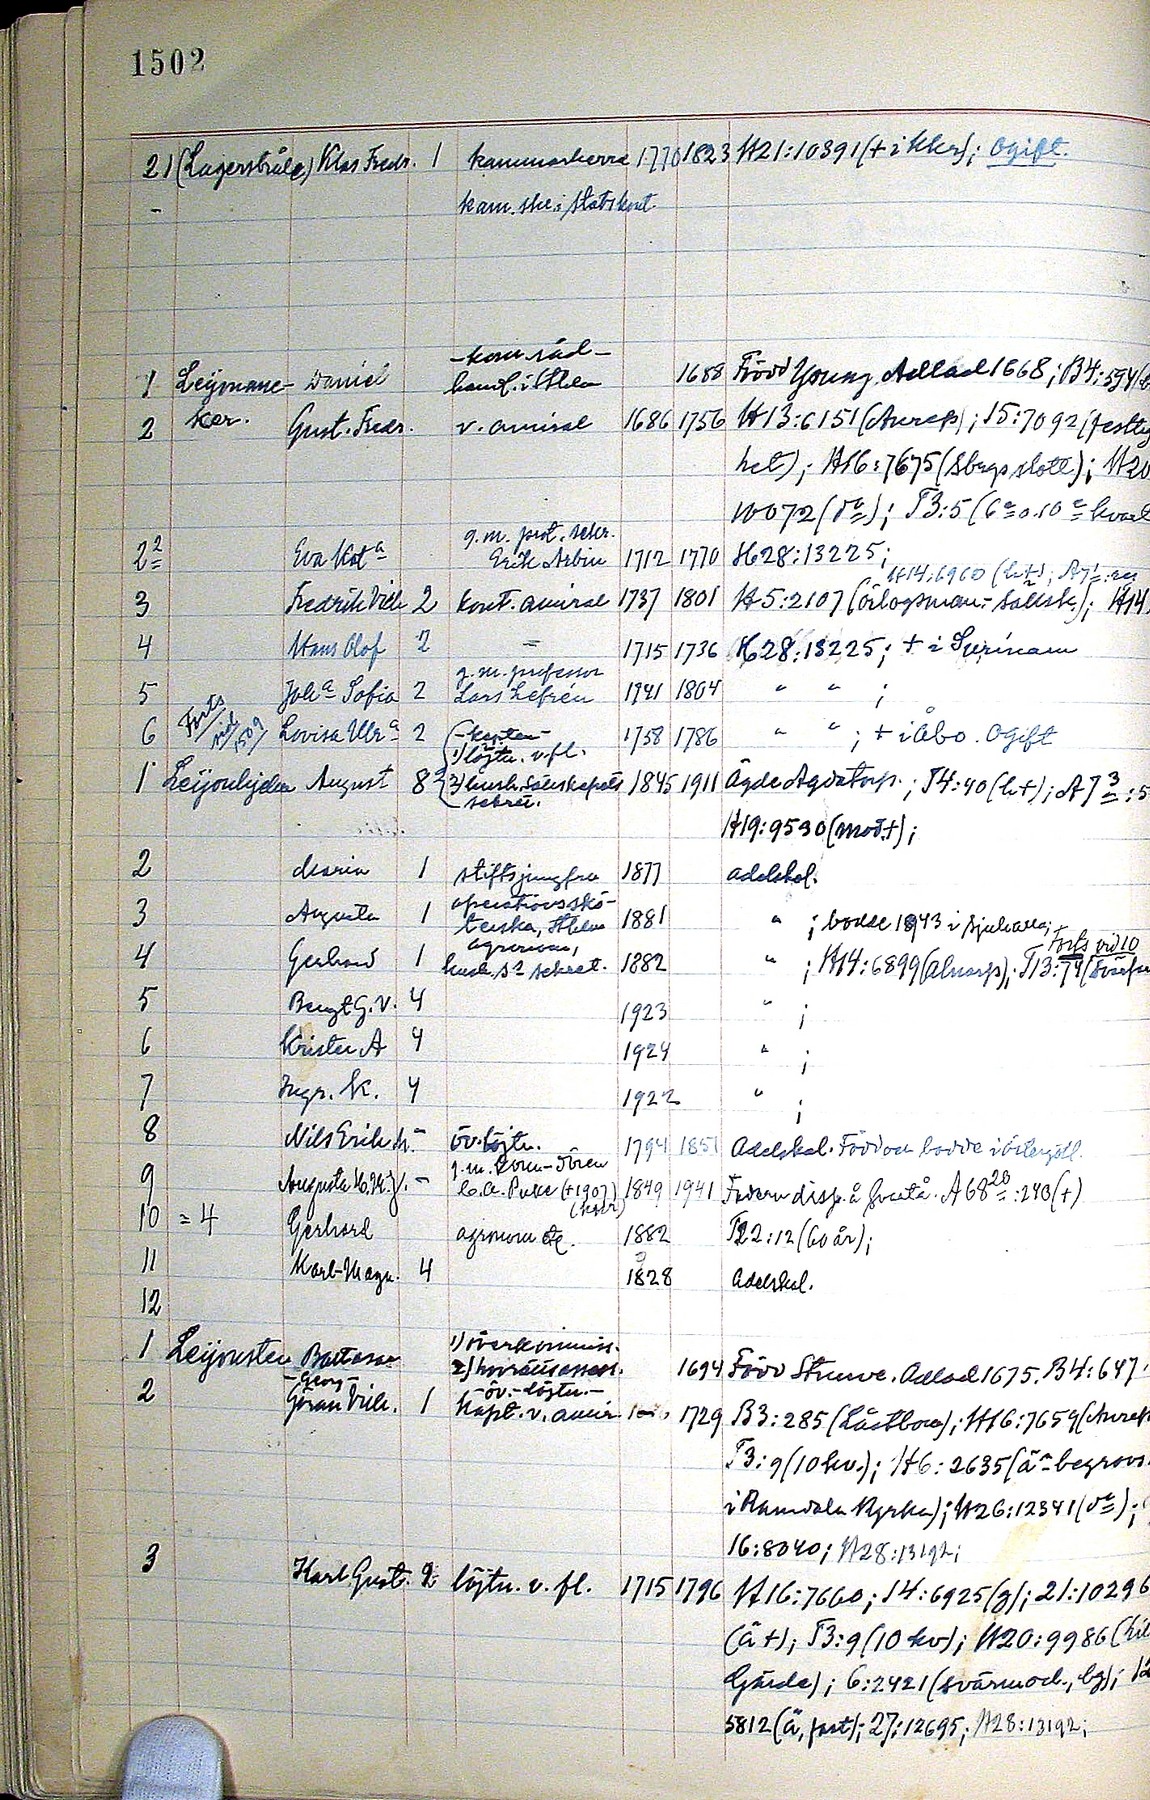 1502
21 (Lagerstråle) Klas Fredr. 1 kammarherre 1770 1823 H21:10391 (+ i Kkr); Ogift.
- kam. skr. i Statskont.
-kom. råd-
1 Leijonanc- Daniel handl. i Sthlm 1688 Född Young Adlad 1668; B4:594
2 ker. Gust. Fredr. v. amiral 1686 1756 H13:6151 (Anrep); 15:7092 (festlig
het); H16:7675 (Sbergs slott); H20
10072 (do); T3:5 (6e o. 10e kvart
g.m. prot. sekr.
22 Eva Kata Erik Arbin 1712 1770 H28:13225;
H14:6960 (h+);
3 Fredrik Vilh 2 kont. amiral 1737 1801 H5:2107 (örlogsman. Sällsk.); H14
4 Hans Olof 2 = 1715 1736 H28:13225; + i Surinam
g.m. professor
5 Joha Sofia 2 Lars Lefrén 1741 1804 " " ;
6 Forts vid 1509 Lovisa Ulra 2 1758 1786 " " ; + i Åbo. Ogift
-kapten-
1) löjtn. v. fl.
1 Leijonhjelm August 8 2) hush. sällskapets 1845 1911 Ägde Agdatorp.; T4:40 (h+); A73:5
sekret.
H19:9530 (mod+);
2 Maria 1 stiftsjungfru 1877 adelskal.
operationsskö-
3 Augusta 1 terska, Sthlm 1881 " ; bodde 1943 i Sjuhalla;
agronom, Forts vid 10
4 Gerhard 1 hush. Ss sekret. 1882 " ; H14:6899 (Alnarp); T13:74
5 Bengt G. V. 4 1923 " ;
6 Krister A 4 1924 " ;
7 Ingr. K. 4 1922 " ;
8 Nils Erik - öv. löjtn. 1794 1851 Adelskal. Född o bodde i Östergötl.
g.m.
9 Augusta - C. A. Puke (+1907) 1849 1941 Fadern disp. å A6820:240 (+)
10 = 4 Gerhard agronom etc. 1882 T22:12 (60 år);
11 Karl-Magn. 4 1828 Adelskal.
12
1) överkommiss.
1 Leijonsten Baltasar 2) hovrättsassess. 1694 Född Struwe. Adlad 1675. B4:647
-Georg- -öv.-löjtn.-
2 Göran Vilh. 1 Kapt. v. amir. 1729 B3:285 (Låstbom); H16:7659 (Anrep
T3:9 (10 kv.); H6:2635 (ä begravs.
i Ramdala Kyrka); H26:12341 (do);
16:8040; H28:13192;
3 Karl Gust. 2 löjtn. v. fl. 1715 1796 H16:7660; 14:6925 (g); 21:10296
(ä+); T3:9 (10 kv); H20:9986
Gärde); 6:2421 (svärmod., bg);
5812 (ä, port); 27:12695; H28:13192;